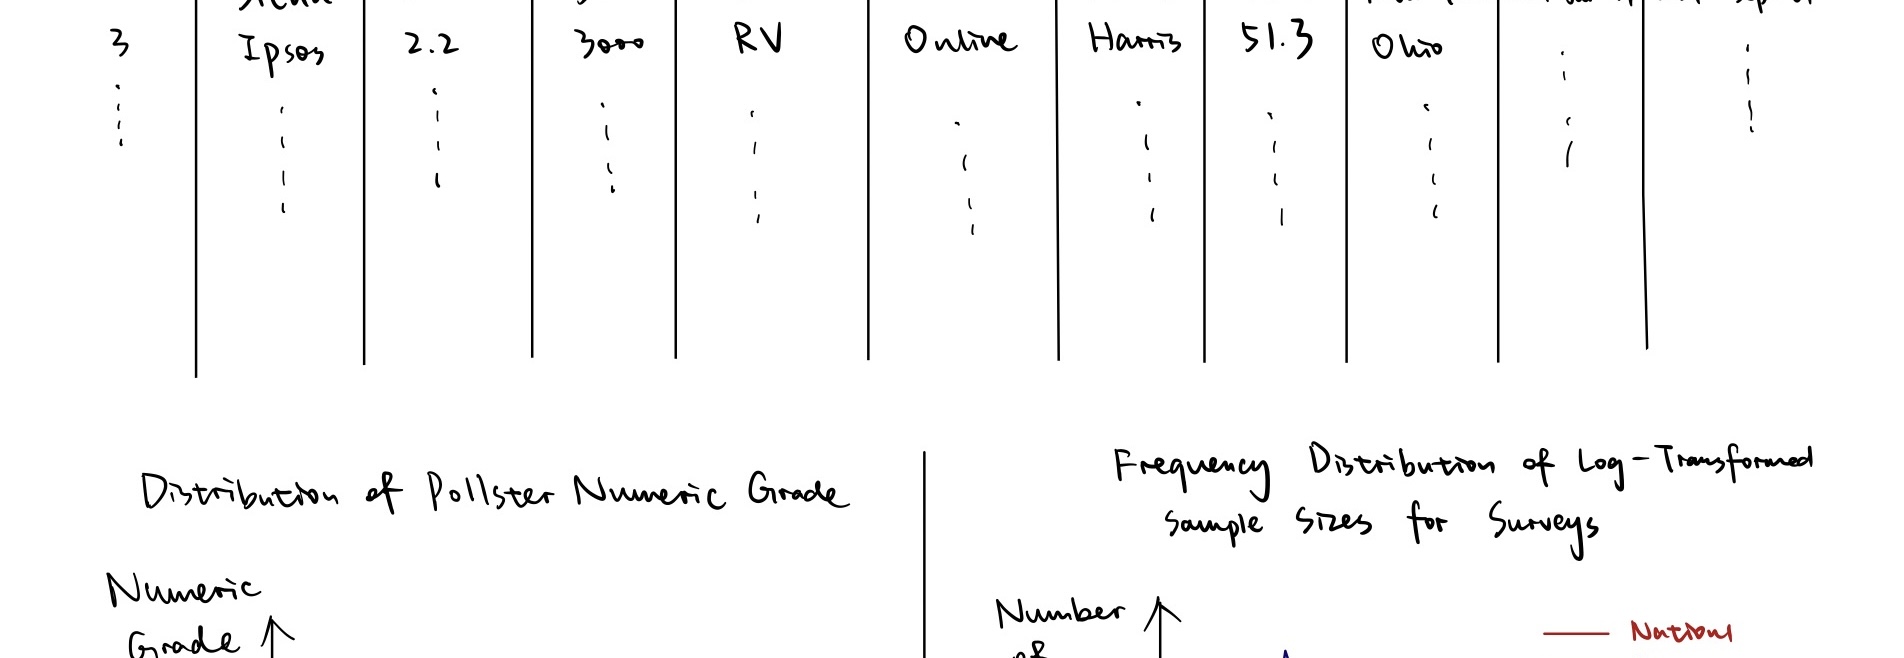 3 Ipsos 2.2 3000 RV Online Harris 51.3 Ohio
Distribution of Pollster Numeric Grade
Numeric
Grade
Frequency Distribution of Log-Transformed
Sample Sizes for Surveys
Number
of
Nationl